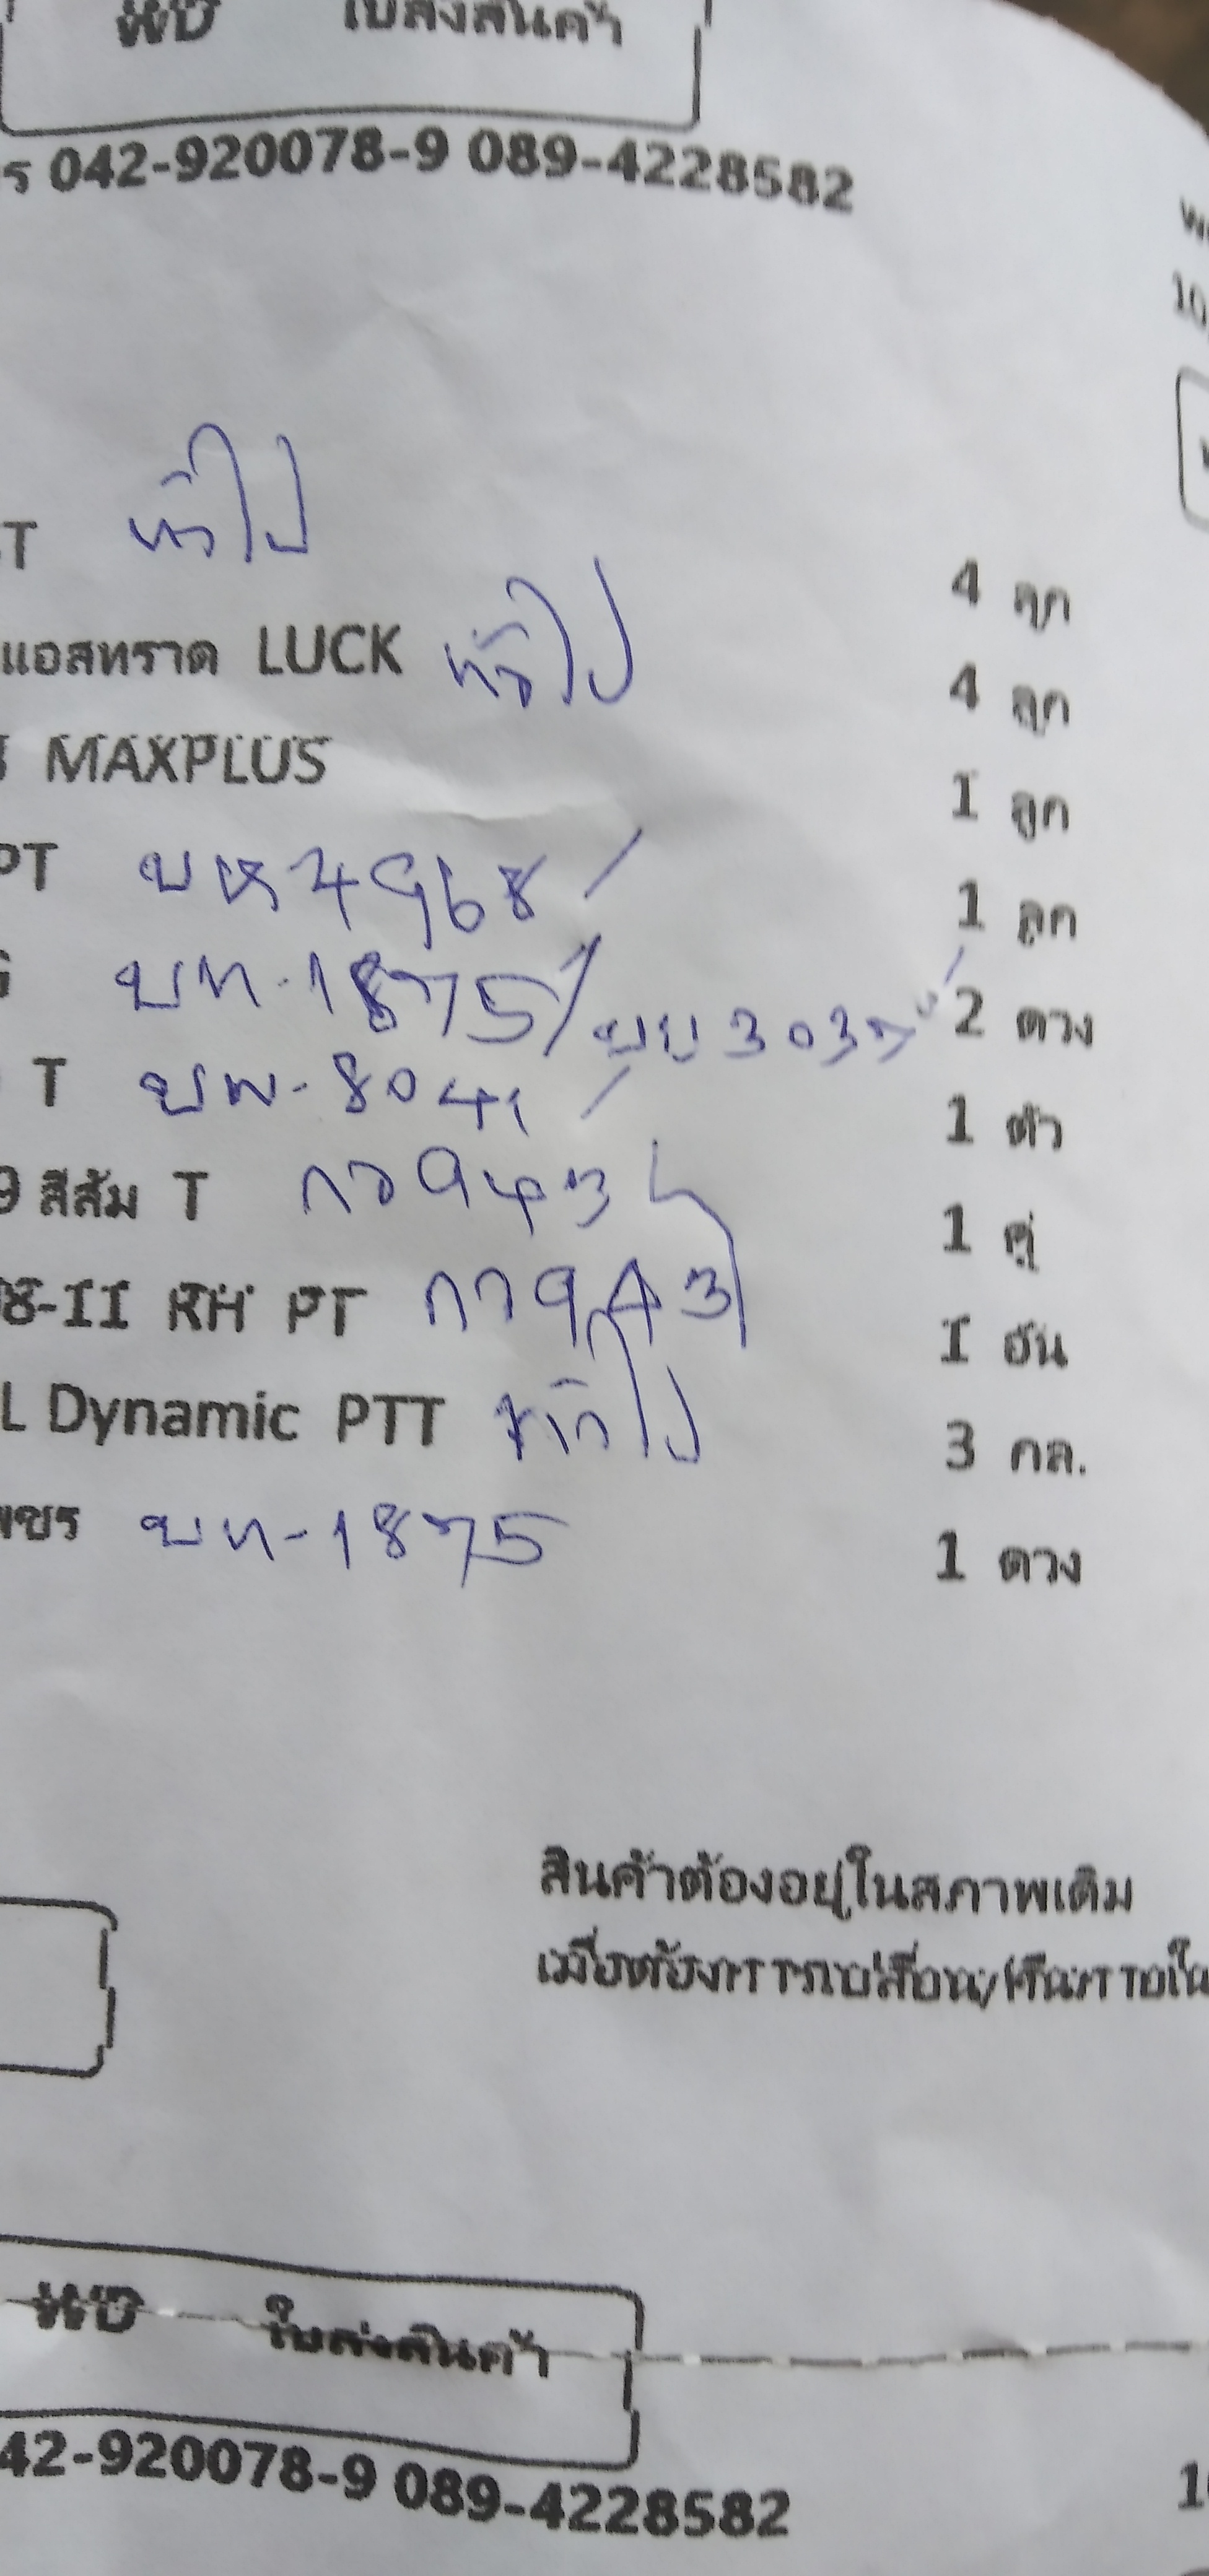 WD ใบส่งสินค้า
ร 042-920078-9 089-4228582
10
T ทั่วไป 4 ลูก
แอสทราด LUCK ทั่วไป 4 ลูก
MAXPLUS 1 ลูก
PT บห 4968 / 1 ลูก
G บท-1875 / บบ 3037 2 ดวง
T บพ-8041 / 1 ตัว
9 สีส้ม T กว 943 1 คู่
08-II RH PT กว 943 1 อัน
L Dynamic PTT ทั่วไป 3 กล.
เพชร บท-1875 1 ดวง
สินค้าต้องอยู่ในสภาพเดิม
เมื่อต้องการเปลี่ยน/คืนภายใน
WD ใบส่งสินค้า
42-920078-9 089-4228582